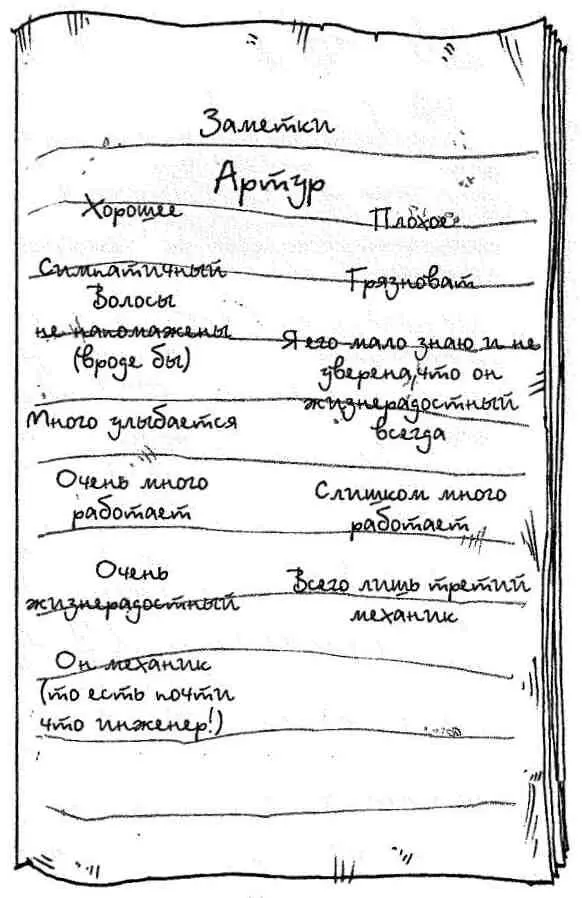 Заметки
Артур
Хорошее
Плохое
Симпатичный
Грязноват
Волосы
не напомажены
(вроде бы)
Я его мало знаю и не
уверена, что он
жизнерадостный
всегда
Много улыбается
Очень много
работает
Слишком много
работает
Очень
жизнерадостный
Всего лишь третий
механик
Он механик
(то есть почти
что инженер!)